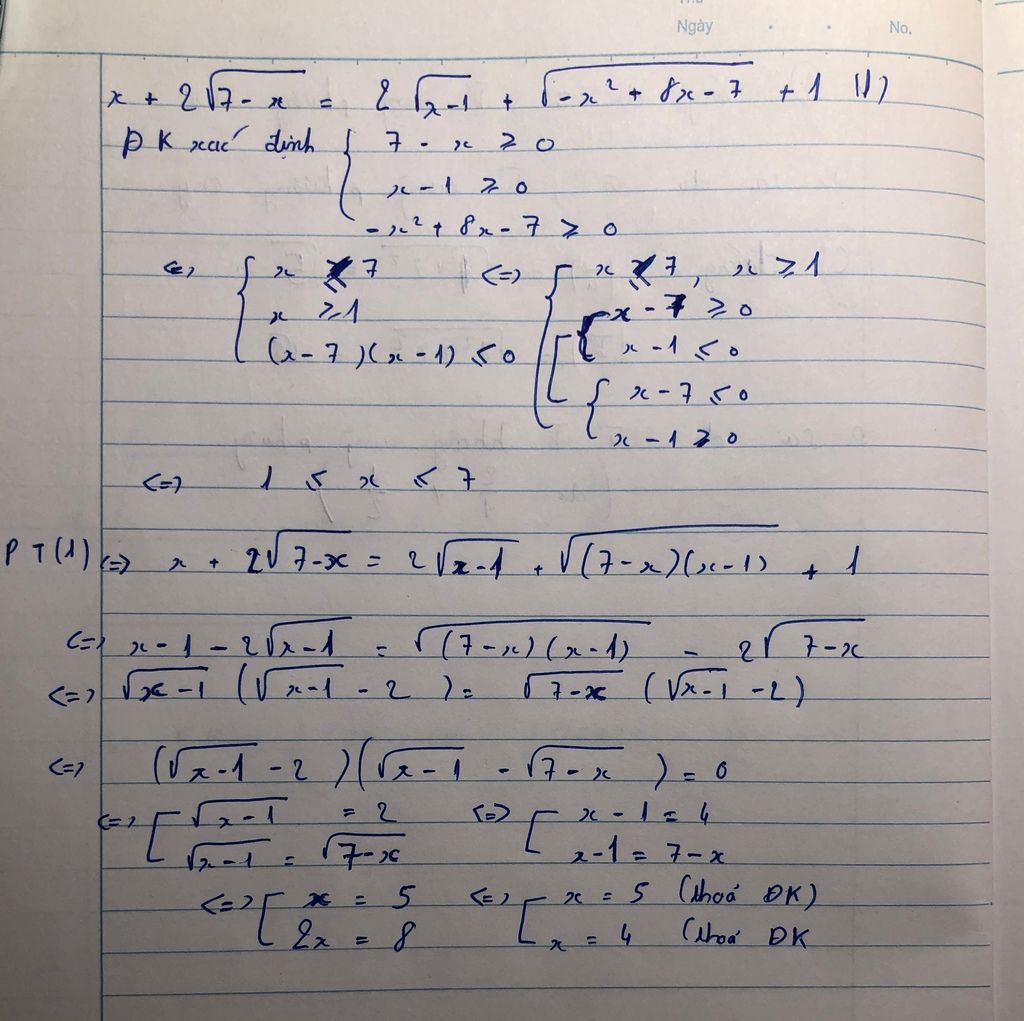 Ngày No.
x + 2√(7 - x) = 2√(x-1) + √(-x² + 8x - 7) + 1 (1)
ĐK xác định { 7 - x ≥ 0
x - 1 ≥ 0
-x² + 8x - 7 ≥ 0
<=> { x ≤ 7 <=> { x ≤ 7, x ≥ 1
x ≥ 1 [ { x - 7 ≥ 0
(x-7)(x-1) ≤ 0 x - 1 ≤ 0
{ x - 7 ≤ 0
x - 1 ≥ 0
<=> 1 ≤ x ≤ 7
PT(1) <=> x + 2√(7-x) = 2√(x-1) + √((7-x)(x-1)) + 1
<=> x - 1 - 2√(x-1) = √((7-x)(x-1)) - 2√(7-x)
<=> √(x-1) (√(x-1) - 2) = √(7-x) (√(x-1) - 2)
<=> (√(x-1) - 2)(√(x-1) - √(7-x)) = 0
<=> [ √(x-1) = 2 <=> [ x - 1 = 4
√(x-1) = √(7-x) x-1 = 7-x
<=> [ x = 5 <=> [ x = 5 (thoả ĐK)
2x = 8 x = 4 (thoả ĐK